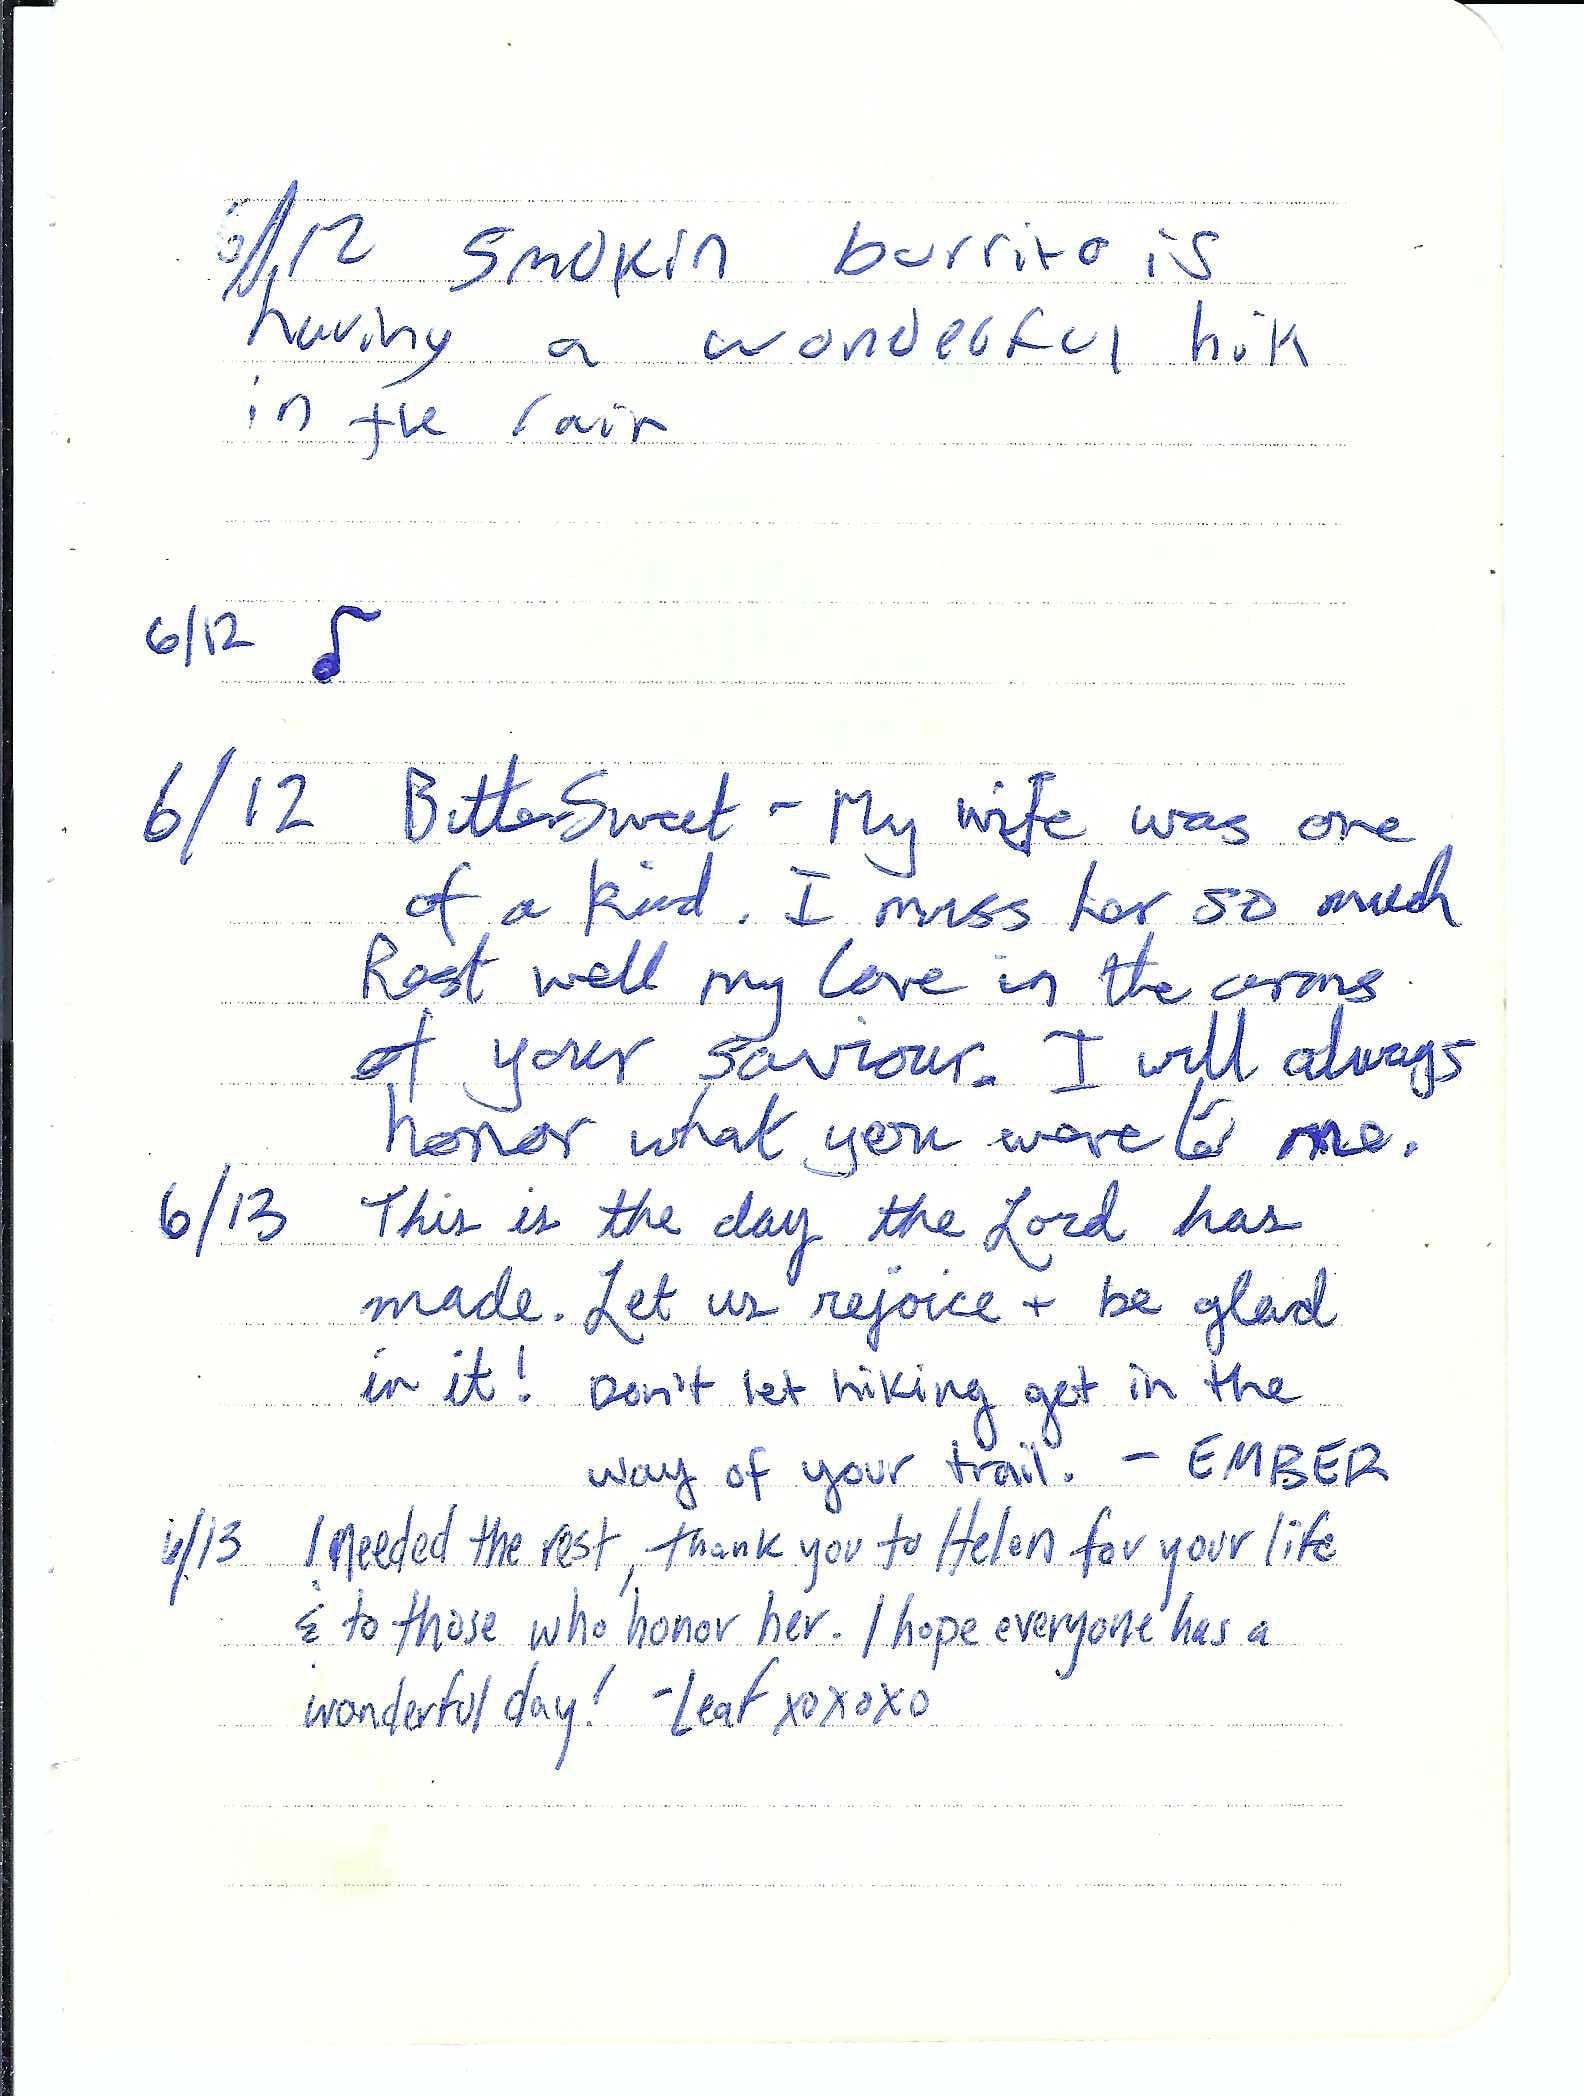 6/12 Smokin burrito is
having a wonderful hik
in the rain
6/12 ♪
6/12 BitterSweet - My wife was one
of a kind. I miss her so much
Rest well my love in the arms
of your saviour. I will always
honor what you were to me.
6/13 This is the day the Lord has
made. Let us rejoice + be glad
in it! Don't let hiking get in the
way of your trail. - EMBER
6/13 I needed the rest, thank you to Helen for your life
& to those who honor her. I hope everyone has a
wonderful day! -Leaf xoxoxo